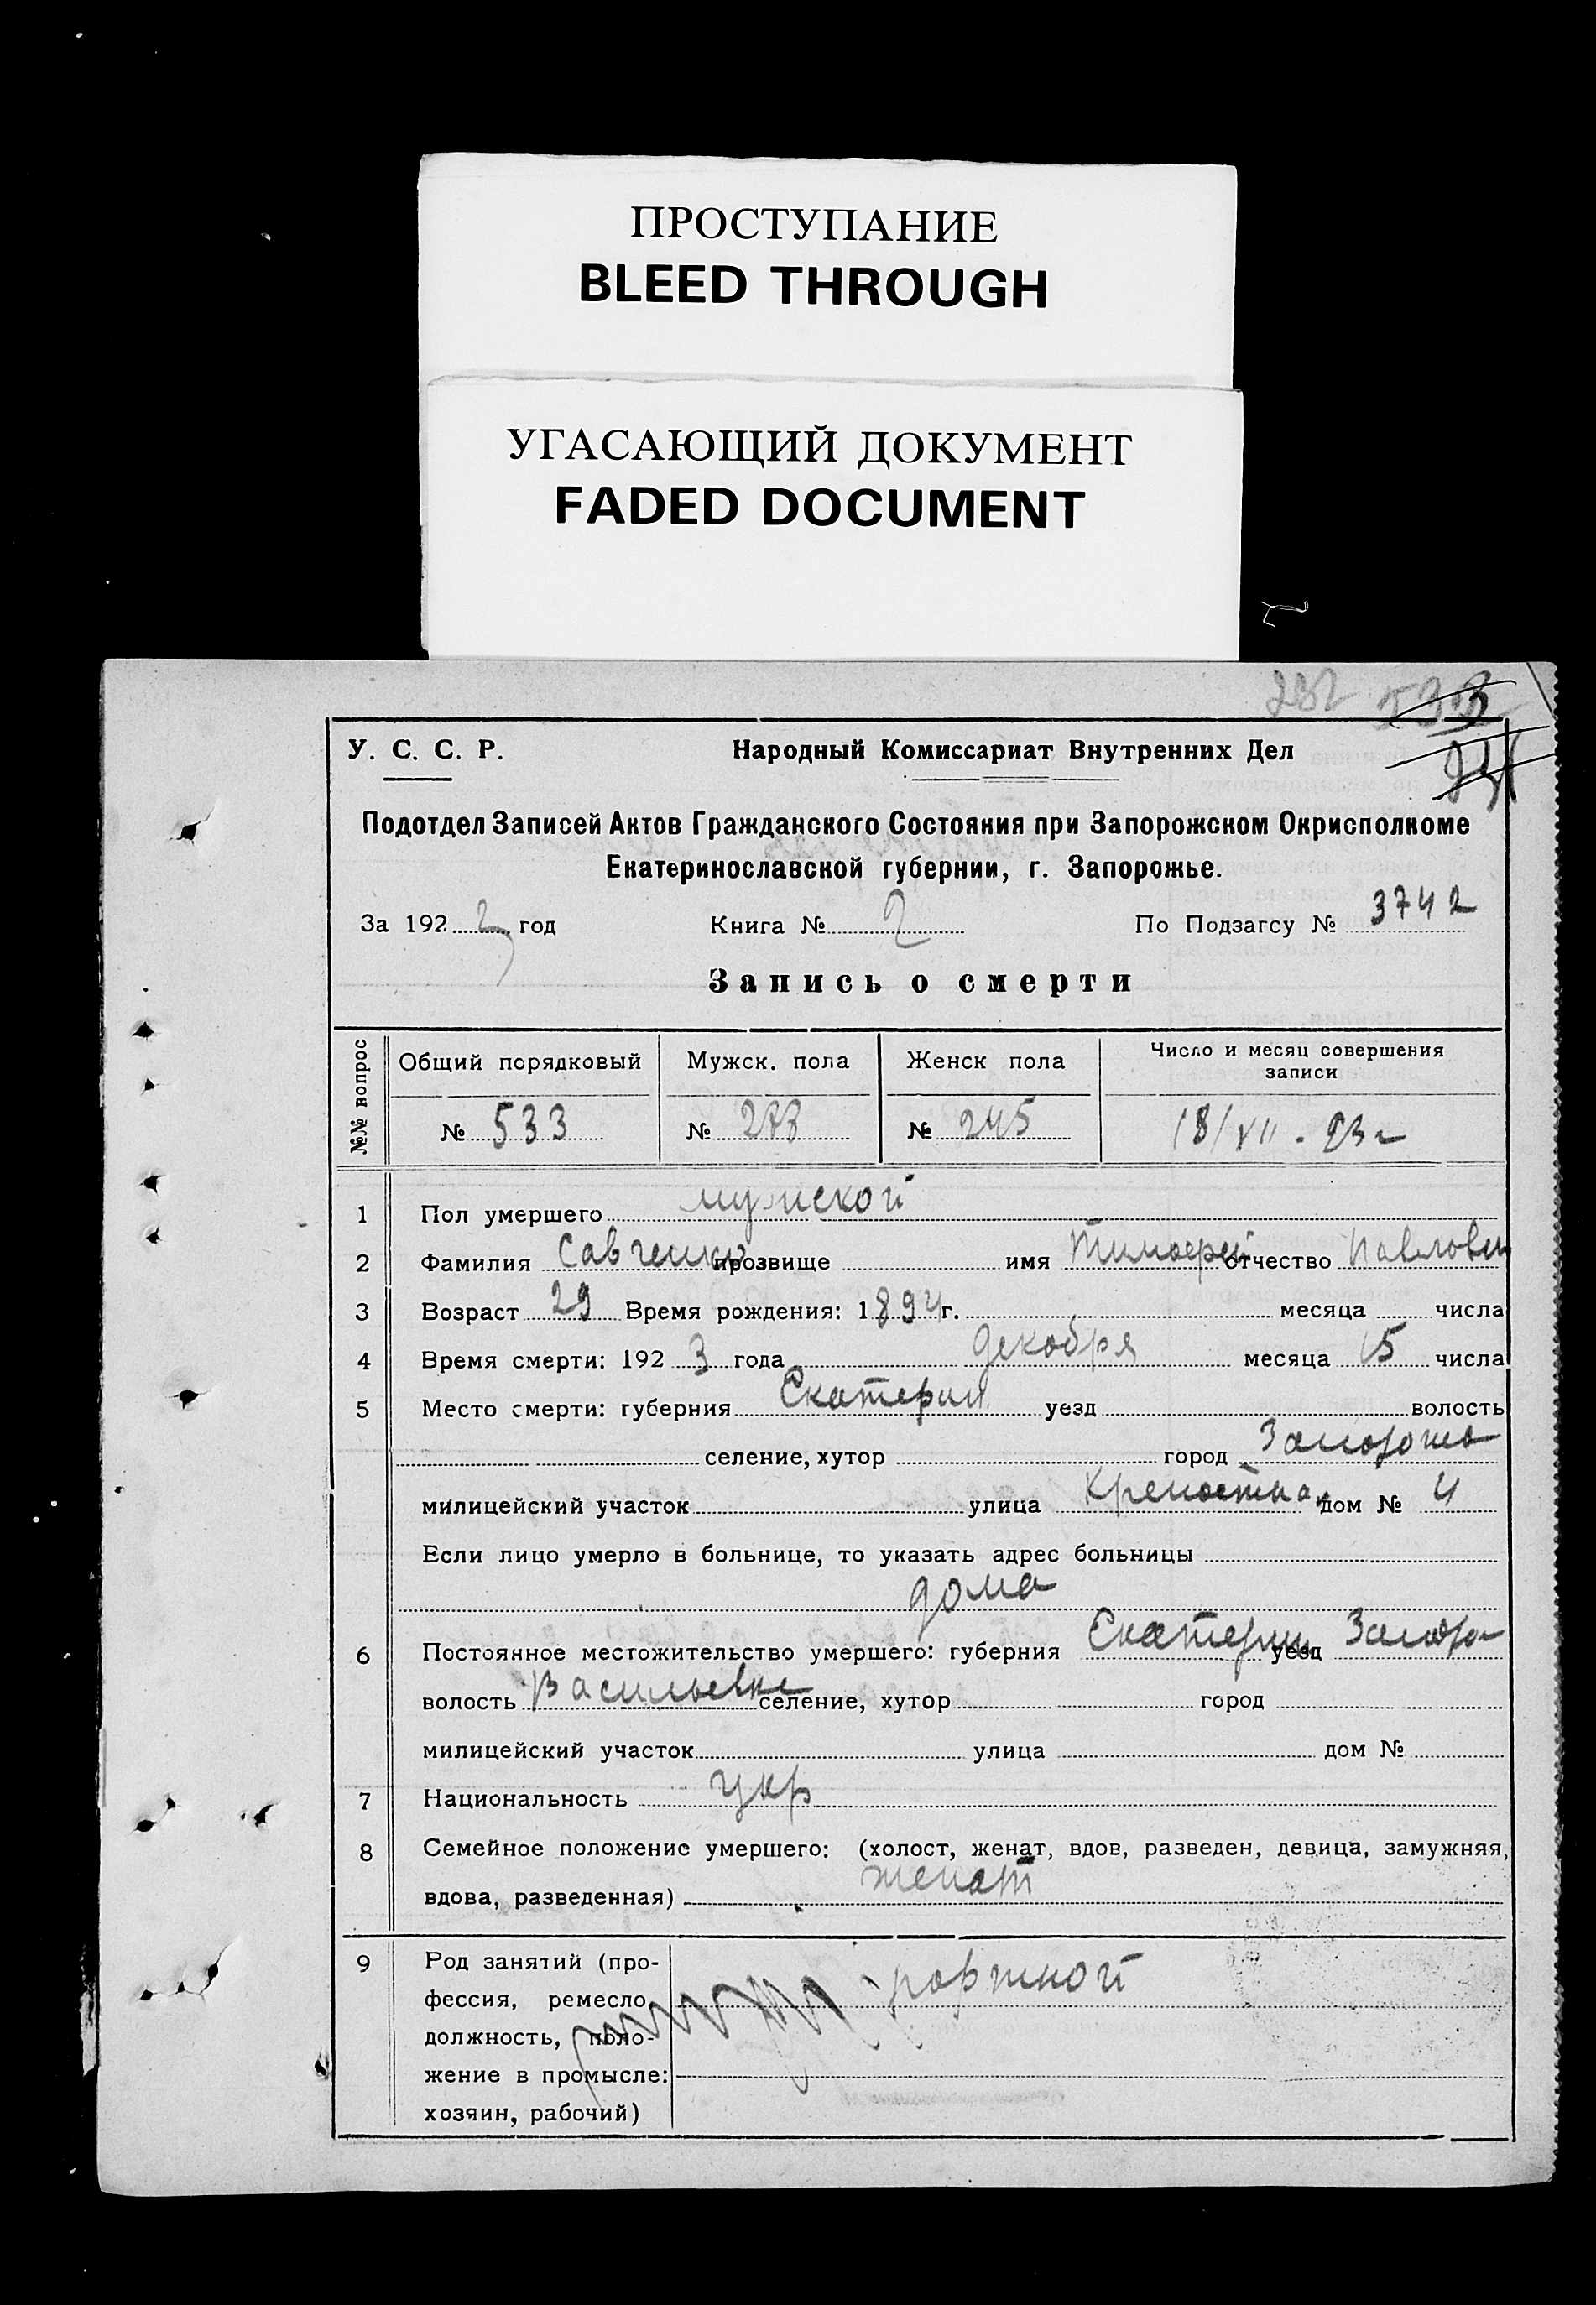 ПРОСТУПАНИЕ
BLEED THROUGH
УГАСАЮЩИЙ ДОКУМЕНТ
FADED DOCUMENT
232 533
У. С. С. Р. Народный Комиссариат Внутренних Дел
Подотдел Записей Актов Гражданского Состояния при Запорожском Окрисполкоме
Екатеринославской губернии, г. Запорожье.
За 1923 год Книга № 2 По Подзагсу № 3742
Запись о смерти
№№ вопрос Общий порядковый Мужск. пола Женск пола Число и месяц совершения записи
№ 533 № 288 № 245 18/XII - 23 г
1 Пол умершего мужской
2 Фамилия Савченко прозвище имя Тимофей отчество Павлови
3 Возраст 29 Время рождения: 1894 г. месяца числа
4 Время смерти: 1923 года декабря месяца 15 числа
5 Место смерти: губерния Екатерин уезд волость
селение, хутор город Запорожье
милицейский участок улица Крепостная дом № 4
Если лицо умерло в больнице, то указать адрес больницы
дома
6 Постоянное местожительство умершего: губерния Екатерин уезд Запорож
волость Васильевка селение, хутор город
милицейский участок улица дом №
7 Национальность укр
8 Семейное положение умершего: (холост, женат, вдов, разведен, девица, замужняя,
вдова, разведенная) женат
9 Род занятий (про-
фессия, ремесло, портной
должность, поло-
жение в промысле:
хозяин, рабочий)